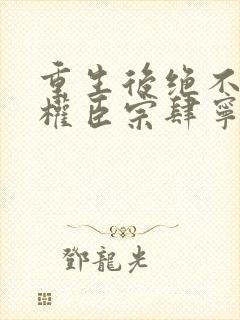 重生後绝不
權臣宗肆寧
鄧龍光